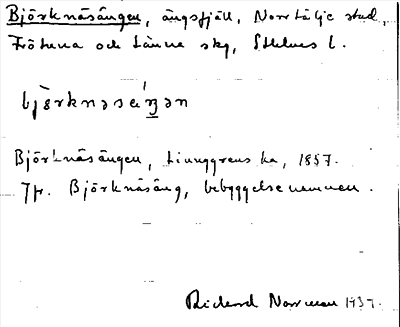 Björknäsängen, ängsfjäll, Norrtälje stad,
Frötuna och Länna skg, Sthlms l.
bjö̀rknəsæ´ŋən
Björknäsängen, Ljunggrens ka, 1857.
Jfr. Björknäsäng, bebyggelsenamnen.
Rickard Norrman 1937.